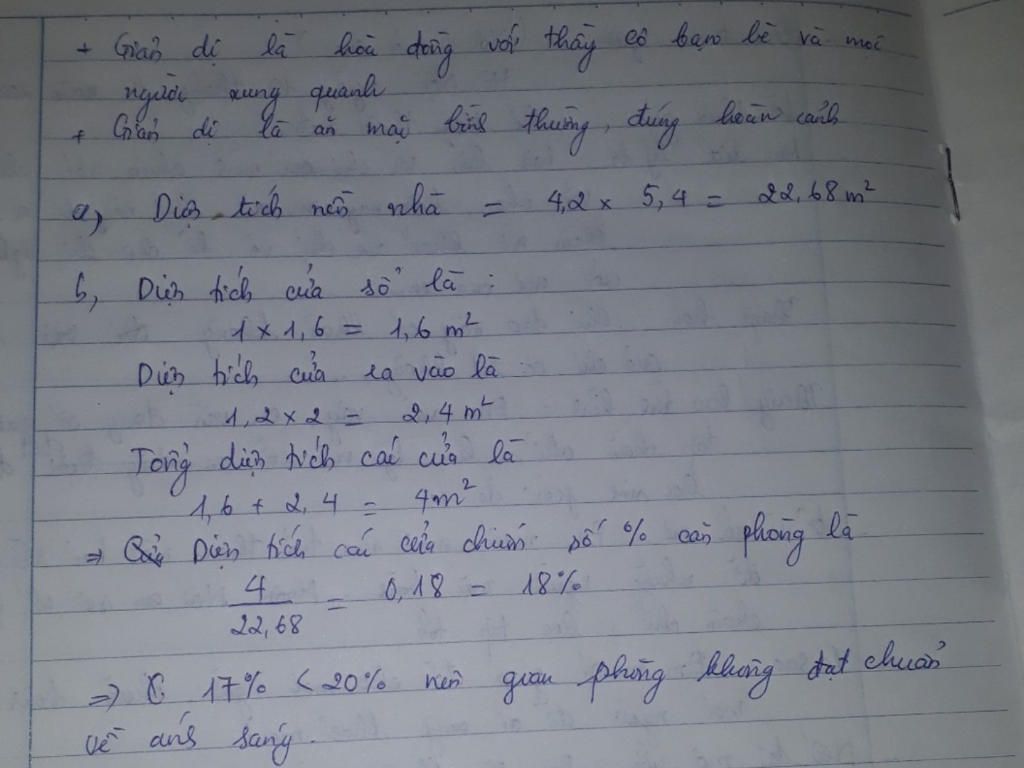 + Giản dị là hoà đồng với thầy cô bạn bè và mọi
người xung quanh
+ Giản dị là ăn mặc bình thường, đúng hoàn cảnh
a, Diện tích nền nhà = 4,2 × 5,4 = 22,68 m²
b, Diện tích cửa sổ là :
1 × 1,6 = 1,6 m²
Diện tích cửa ra vào là
1,2 × 2 = 2,4 m²
Tổng diện tích các cửa là
1,6 + 2,4 = 4m²
⇒ Diện tích các cửa chiếm số % căn phòng là
4/22,68 = 0,18 = 18%
⇒ 17% < 20% nên gian phòng không đạt chuẩn
về ánh sáng.